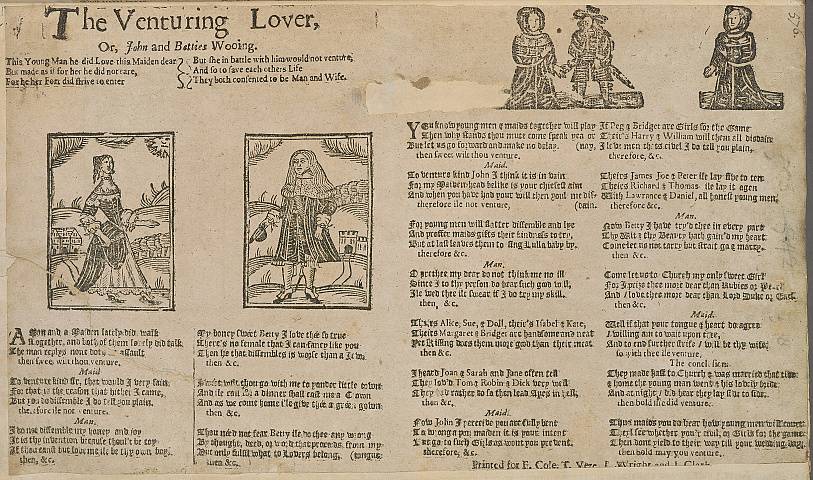 The Venturing Lover,
Or, John and Betties Wooing.
This Young Man he did Love this Maiden dear
But made as if for her he did not care,
For he her Fort did strive to enter
But she in battle with him would not venture,
And so to save each others Life
They both consented to be Man and Wife.
A Man and a Maiden lately did walk
Together, and both of them lovely did talk
The man replys assault
then sweet wilt thou venture.
Maid
To venture kind Sir, that would I very fain,
For that is the reason that hither I came,
But you do dissemble I do tell you plain,
therefore ile not venture.
Man,
I do not dissemble my honey and joy
It is thy invention because thou'lt be coy
If thou canst but love me ile be thy own boy,
then, &c.
My honey sweet Betty I love thee so true
There's no female that I can fancy like you
Then he that dissembles is worse than a Jew,
then &c.
Sweet wilt thou go with me to yonder little town
And ile call for a dinner shall cost me a Crown
And as we come home i'le give thee a green gown
then &c.
Thou need not fear Betty ile do thee any wrong
By thought, deed, or word that proceeds from my
But only fulfil what to Lovers belong, (tongue,
then &c.
You know young men & maids together will play
Then why stands thou mute come speak yea or
But let us go forward and make no delay. (nay,
then sweet wilt thou venture.
Maid.
To venture kind John I think it is in vain
For my Maiden head belike is your chiefest aim
And when you have had your will then you'l me dis-
therefore ile not venture, (dain.
For young men will flatter dissemble and lye
And proffer maids gifts their kindness to try,
But at last leaves them to sing Lulla baby by,
therefore &c.
Man,
O prethee my dear do not think me no ill
Since I to thy person do bear such good will,
Ile wed thee ile swear if I do try my skill,
then, &c.
Theirs Alice, Sue, & Doll, their's Isabel & Kate,
Theirs Margaret & Bridget are handsome and neat
Yet Kissing does them more good than their meat
then &c.
I heard Joan & Sarah and Jane often tell
They lov'd Tom & Robin & Dick very well
They had rather do so then lead Apes in hell,
then &c.
Maid.
Now John I perceive you are fully bent
To wrong a poor maiden it is your intent
You go to such Girls as wont you prevent,
therefore, &c.
If Peg & Bridget are Girls for the Game
Their's Harry & William will them all disdain
Ile do men the like I do tell you plain,
therefore, &c.
Theirs James Joe & Peter ile lay five to ten
Theirs Richard & Thomas ile lay it agen
With Lawrance & Daniel, all honest young men,
therefore &c.
Man.
Now Betty I have try'd thee in every part
Thy Wit & thy Beauty hath gain'd my heart
Come let us not tarry but strait go & marry,
then &c.
Come let us to Church my only sweet Girl
For I prize thee more dear than Rubies or Pearl
And I love thee more dear than Lord Duke or Earl
then &c.
Maid.
Well if that your tongue & heart do agree
I willing am to wait upon thee,
And to end further strife I will be thy wife,
so with thee ile venture.
The conclusion.
They made haste to Church & was married that time
& home the young man went & his lovely bride
And at night, I did hear they lay side to side,
then bold she did venture.
Thus maids you do hear how young men will venture
They'l see whether you'r civil, or Girls for the game
then don't yield to their way till your wedding day,
then bold may you venture.
Printed for F. Cole, T. Vere, J. Wright and J. Clark.